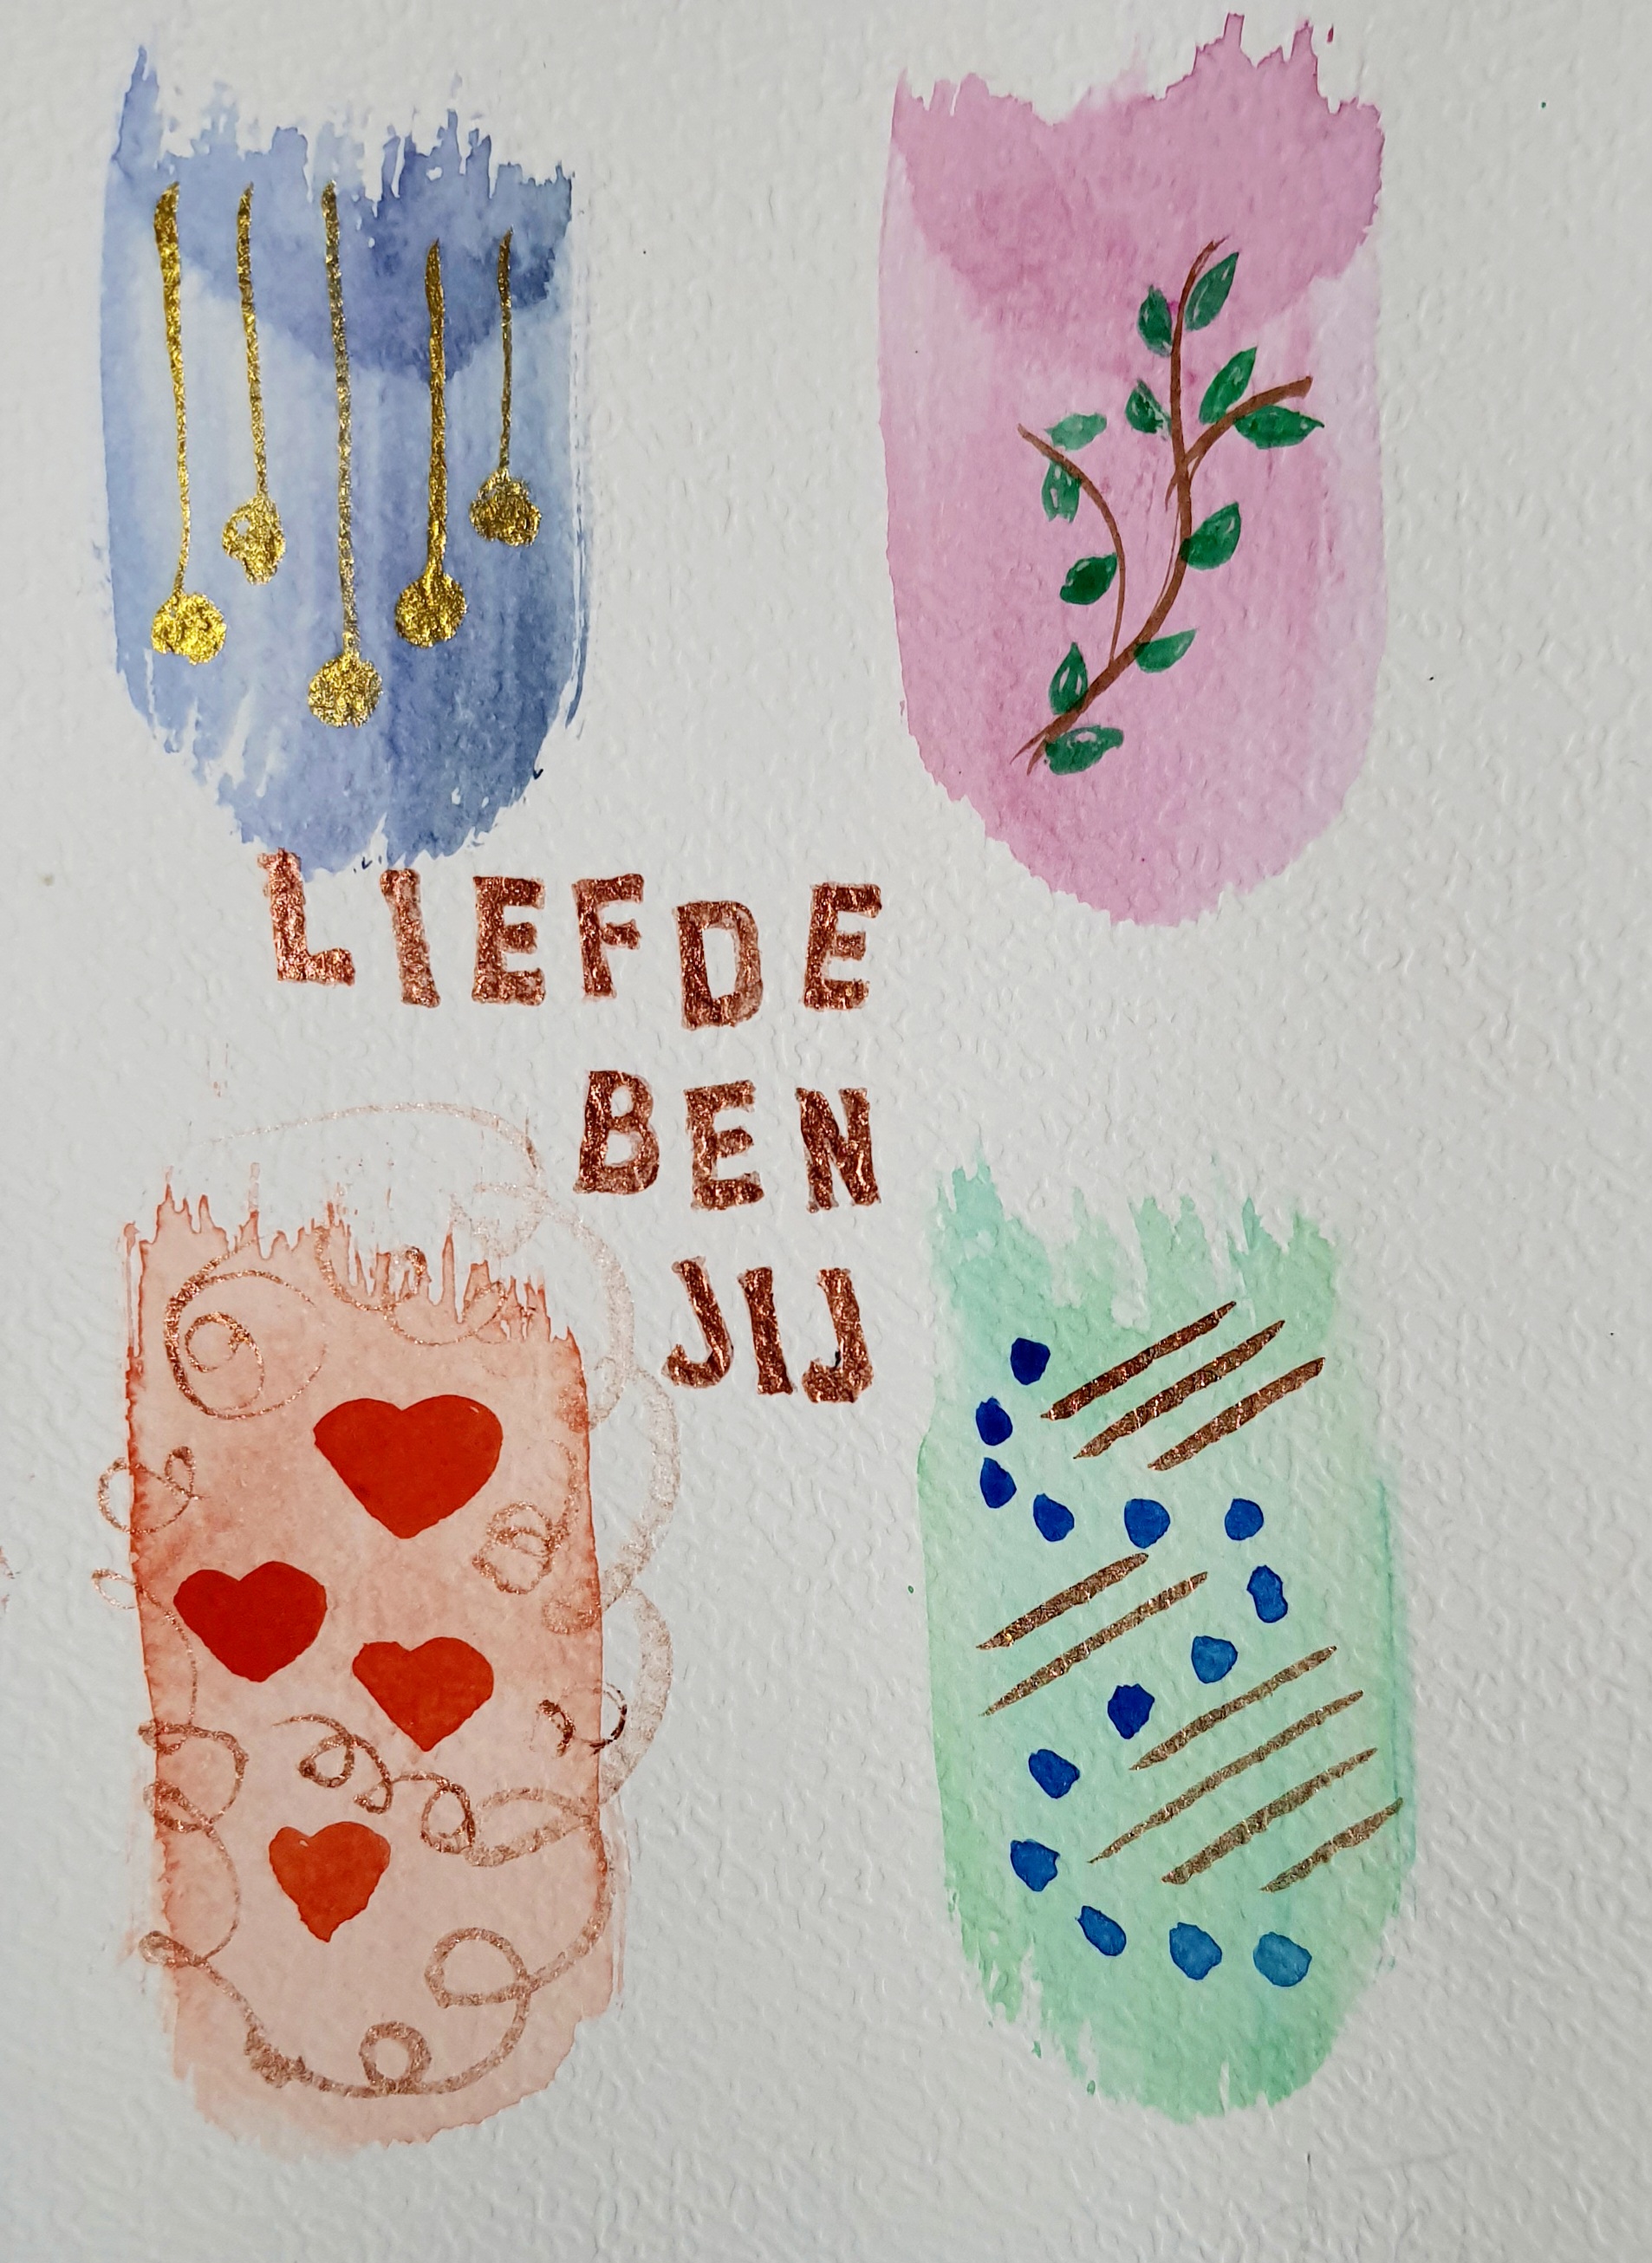 LIEFDE
BEN
JIJ